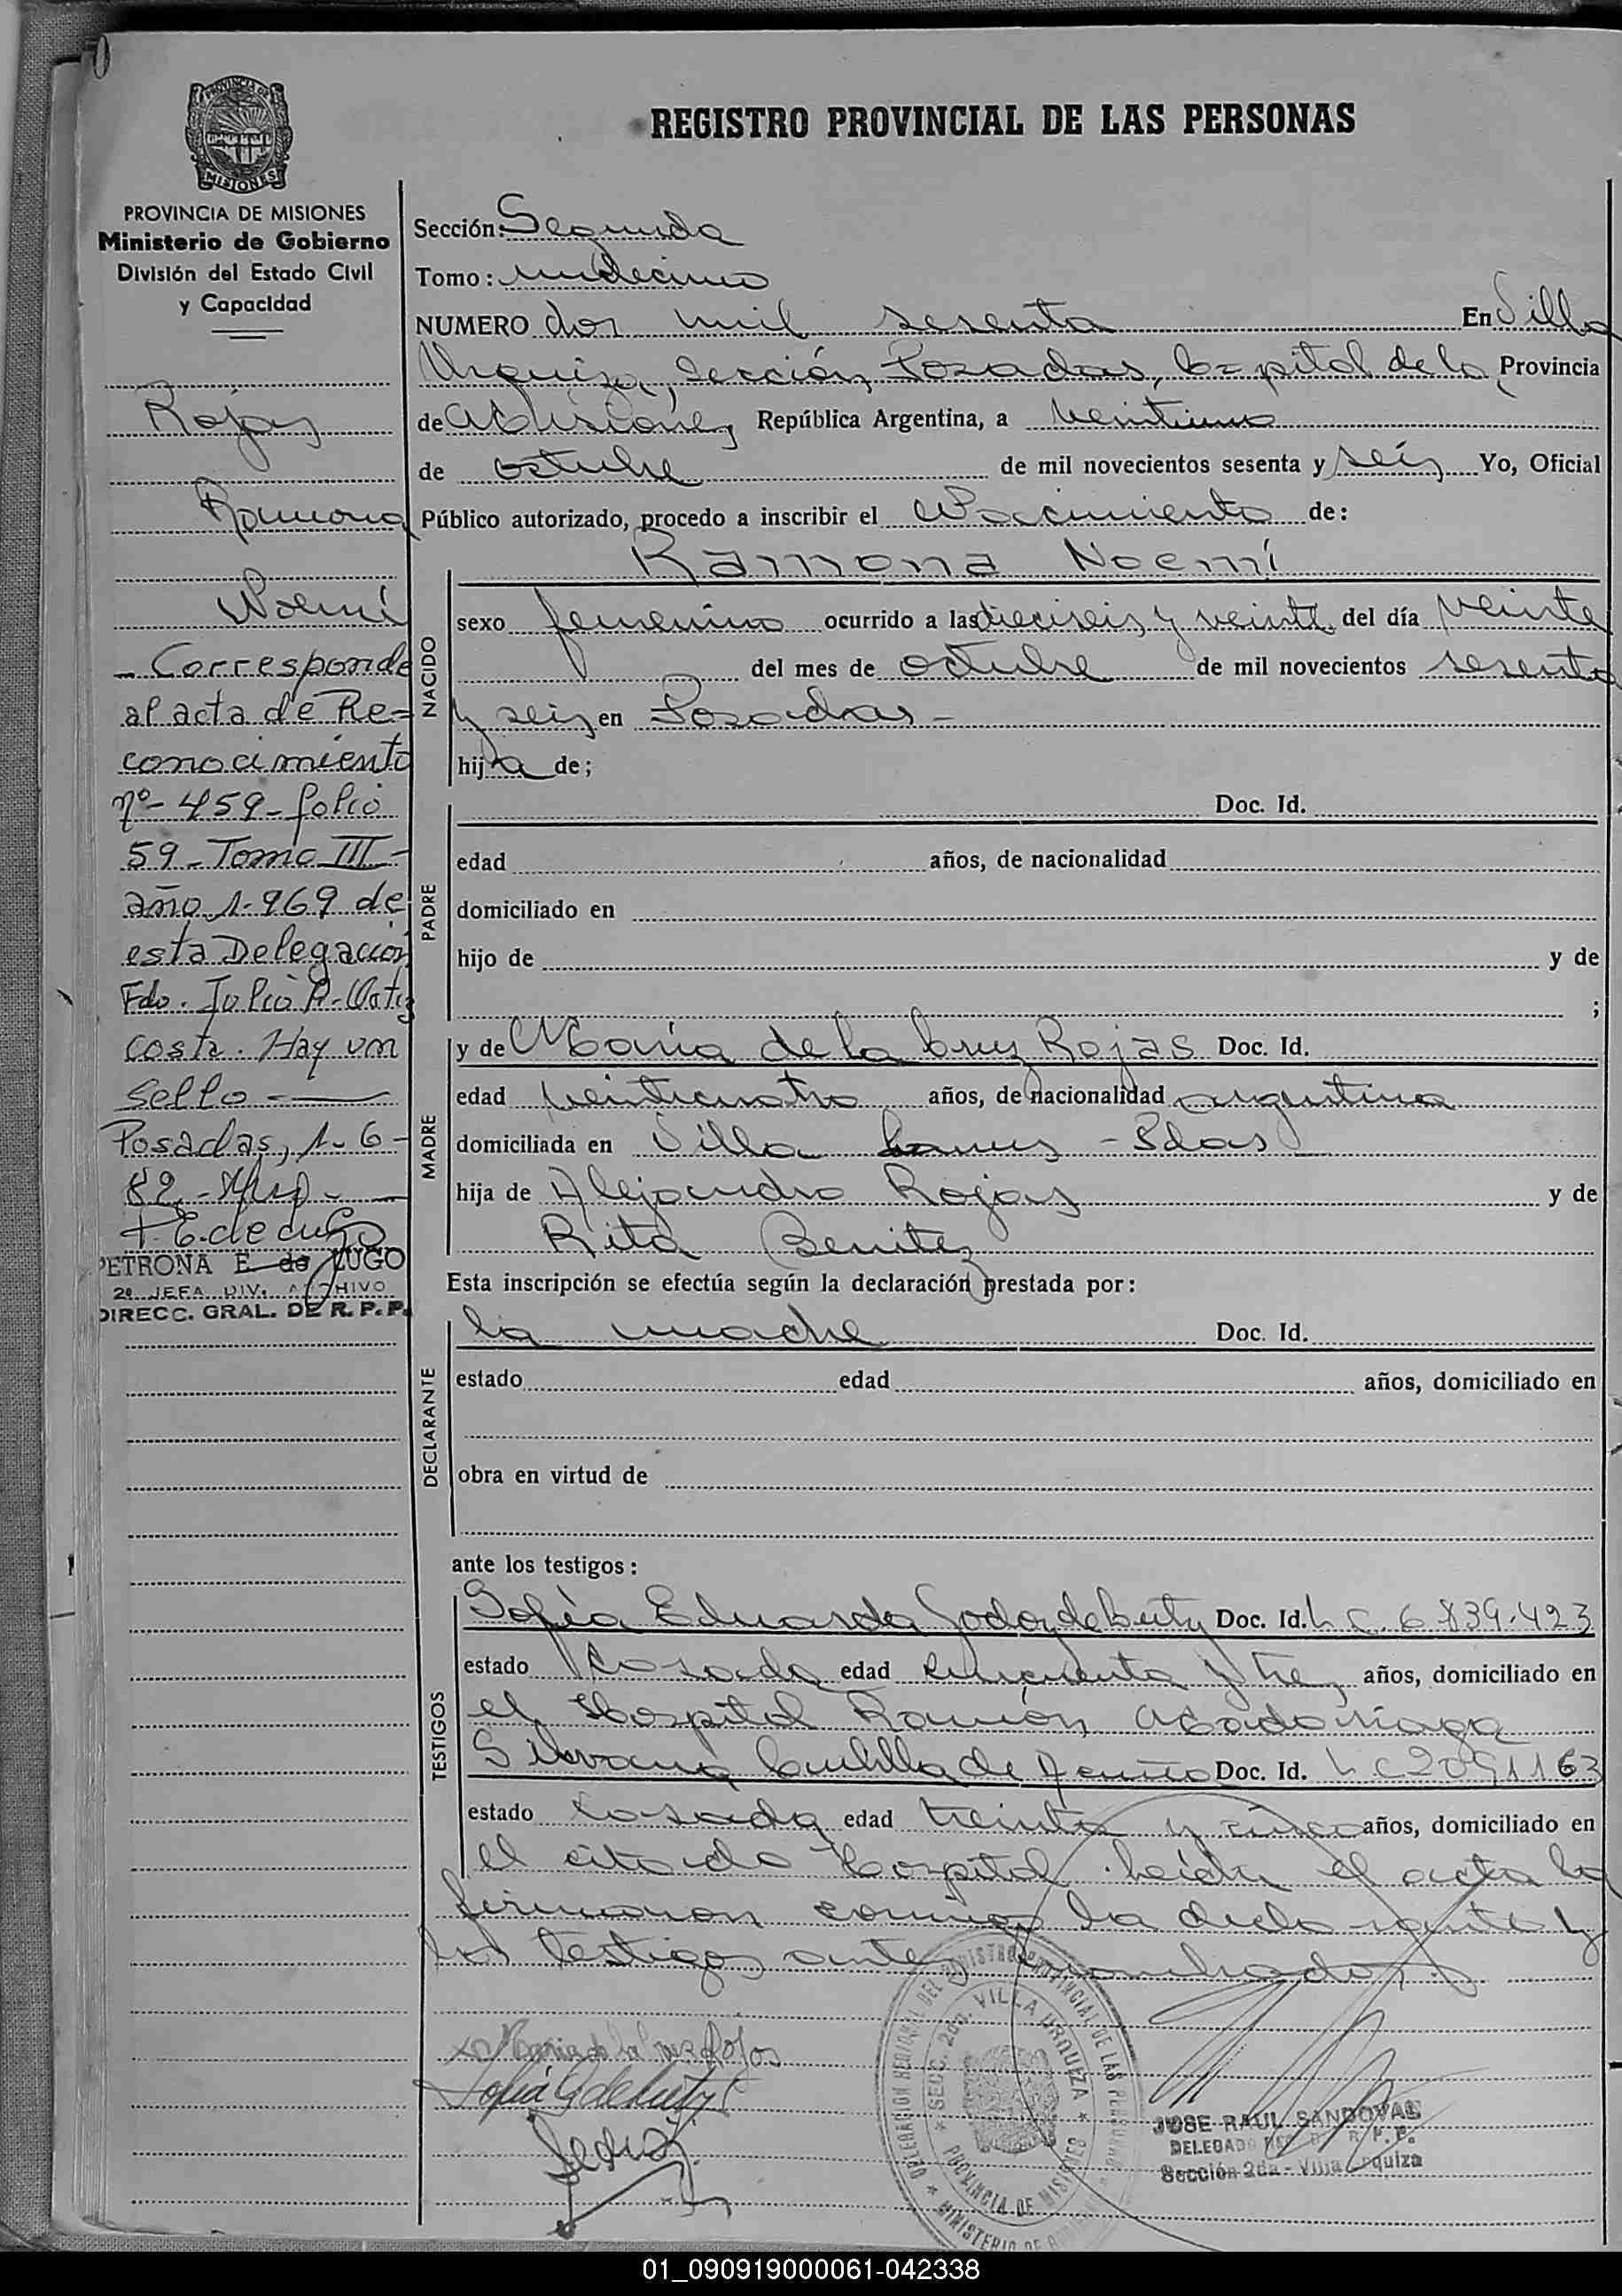 REGISTRO PROVINCIAL DE LAS PERSONAS
PROVINCIA DE
MISIONES
PROVINCIA DE MISIONES
Ministerio de Gobierno
División del Estado Civil
y Capacidad
Rojas
Ramona
Noemí
- Corresponde
al acta de Re-
conocimiento
nº- 459- folio
59- Tomo III-
año 1.969 de
esta Delegación
Fdo. Julio A.
costa. Hay un
Sello -
Posadas, 1-6-
82.-
PETRONA E. de LUGO
2º JEFA DIV. ARCHIVO
DIRECC. GRAL. DE R. P. P.
Sección: Segunda
Tomo: undecimo
NUMERO dos mil sesenta En Villa
Urquiza, Sección, Posadas, Capital de la Provincia
de Misiones República Argentina, a Veintiuno
de octubre de mil novecientos sesenta y seis Yo, Oficial
Público autorizado, procedo a inscribir el Nacimiento de:
Ramona Noemí
NACIDO
sexo femenino ocurrido a las dieciseis y veinte del día veinte
del mes de octubre de mil novecientos sesenta
y seis en Posadas-
hija de;
PADRE
Doc. Id.
edad años, de nacionalidad
domiciliado en
hijo de y de
;
MADRE
y de María de la Cruz Rojas Doc. Id.
edad veinticuatro años, de nacionalidad argentina
domiciliada en Villa Lanus - Pdas
hija de Alejandro Rojas y de
Rita Benitez
Esta inscripción se efectúa según la declaración prestada por:
DECLARANTE
la madre Doc. Id.
estado edad años, domiciliado en
obra en virtud de
ante los testigos:
TESTIGOS
Sofía Eduarda Godoy de Doc. Id. L C. 6 839.423
estado Casada edad cincuenta y tres años, domiciliado en
el Hospital Ramón Madariaga
Silvana de Doc. Id. L C 2091163
estado casada edad treinta y cinco años, domiciliado en
el citado Hospital. Leída el acta la
firmaron conmigo la declarante y
los testigos antes nombrados.
Maria de la cruz Rojos
Sofía G de
DELEGACION REGIONAL DEL REGISTRO PROVINCIAL DE LAS PERSONAS
* SECC. 2da. VILLA URQUIZA *
PROVINCIA DE MISIONES
* MINISTERIO DE
JOSE RAUL SANDOVAL
DELEGADO R. P. P.
Sección 2da - Villa Urquiza
01_090919000061-042338